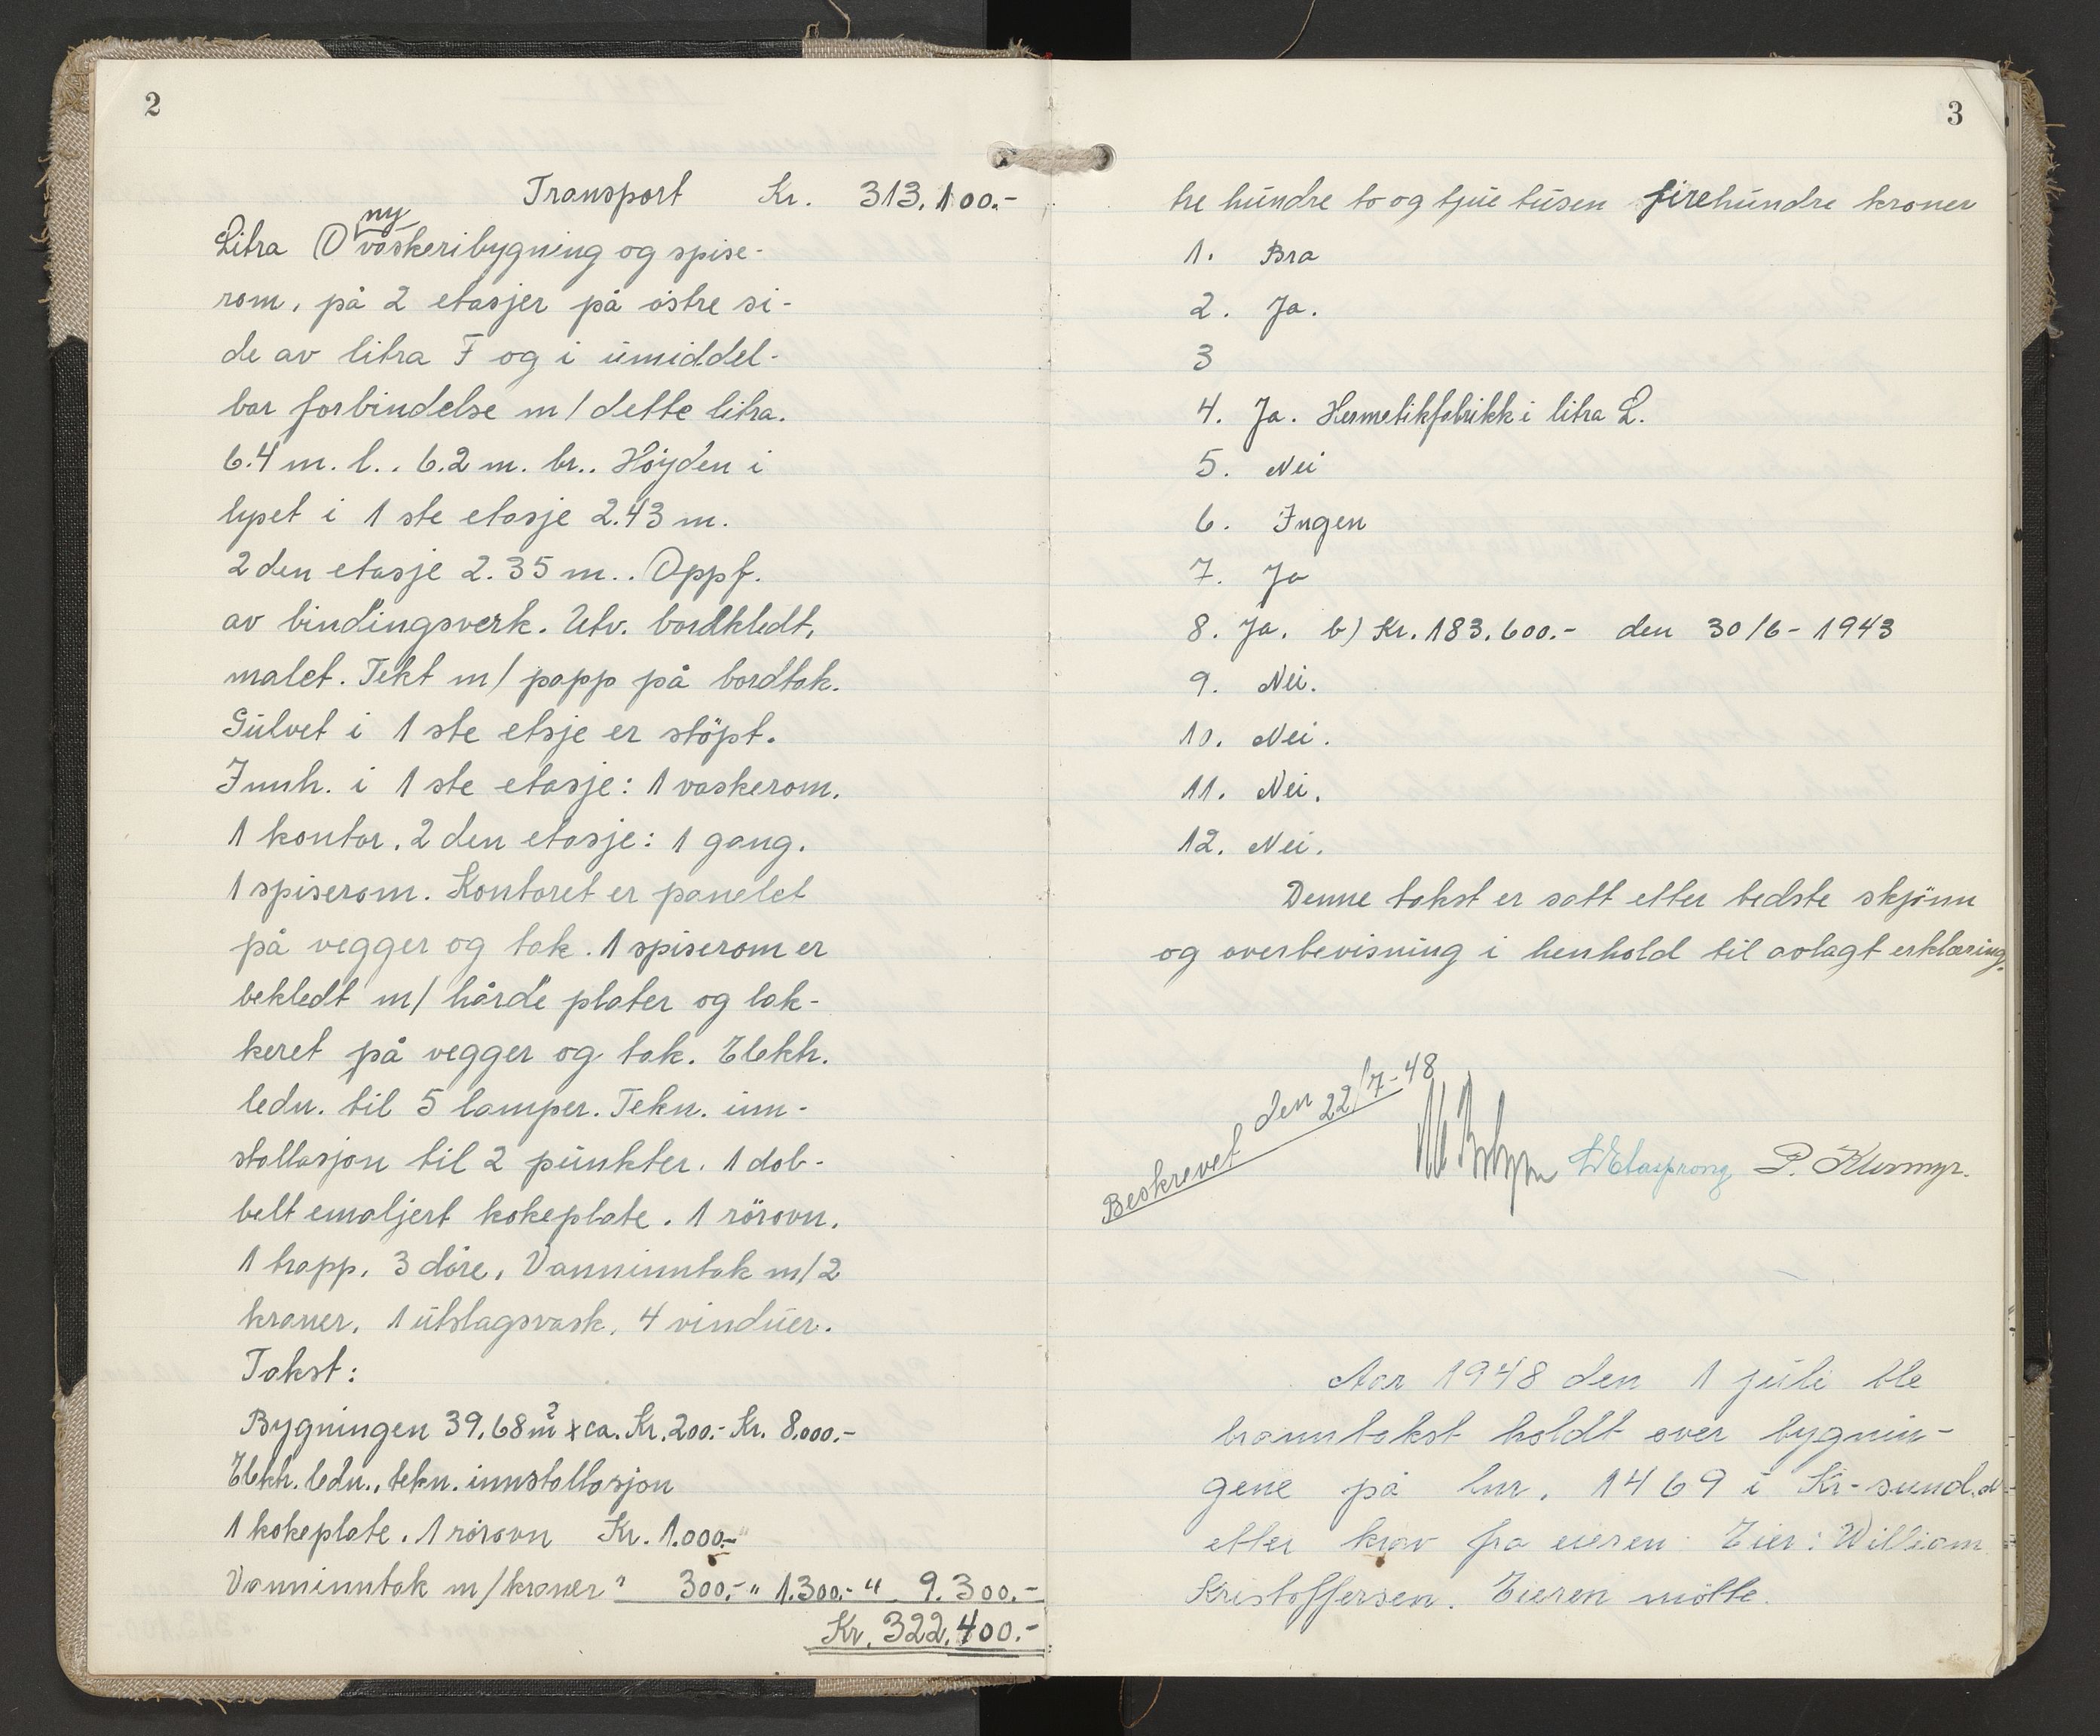 2
Transport Kr. 313.100.-
ny
Litra O vaskeribygning og spise-
rom, på 2 etasjer på östre si-
de av litra F og i umiddel-
bar forbindelse m/dette litra.
6.4 m. l.. 6.2 m. br.. Höyden i
lyset i 1 ste etasje 2.43 m.
2 den etasje 2.35 m.. Oppf.
av bindingsverk. Utv. bordkledt,
malet. Tekt m/ papp på bordtak.
Gulvet i 1 ste etsje er stöpt.
Innh. i 1 ste etasje: 1 vaskerom.
1 kontor. 2 den etasje: 1 gang.
1 spiserom. Kontoret er panelet
på vegger og tak. 1 spiserom er
bekledt m/ hårde plater og lak-
keret på vegger og tak. Elektr.
ledn. til 5 lamper. Tekn. inn-
stallasjon til 2 punkter. 1 dob-
belt emaljert kokeplate. 1 rörovn.
1 trapp. 3 döre. Vanninntak m/2
kraner. 1 utslagsvask. 4 vinduer.
Takst:
Bygningen 39.68 m² x ca. Kr. 200.- Kr. 8.000.-
Elektr. ledn., tekn. innstallasjon
1 kokeplate. 1 rörovn Kr. 1.000.-
Vanninntak m/kraner " 300.- " 1.300.- " 9.300.-
Kr. 322.400.-
3
tre hundre to og tjue tusen firehundre kroner
1. Bra
2. Ja.
3
4. Ja. Hermetikfabrikk i litra L.
5. Nei
6. Ingen
7. Ja
8. Ja. b) Kr. 183.600.- den 30/6-1943
9. Nei.
10. Nei.
11. Nei.
12. Nei.
Denne takst er satt etter bedste skjönn
og overbevisning i henhold til avlagt erklæring.
Beskrevet den 22/7-48
Aar 1948 den 1 juli ble
branntakst holdt over bygnin-
gene på lnr. 1469 i Kr-sund.
etter krav fra eieren. Eier: William
Kristoffersen. Eieren mötte.